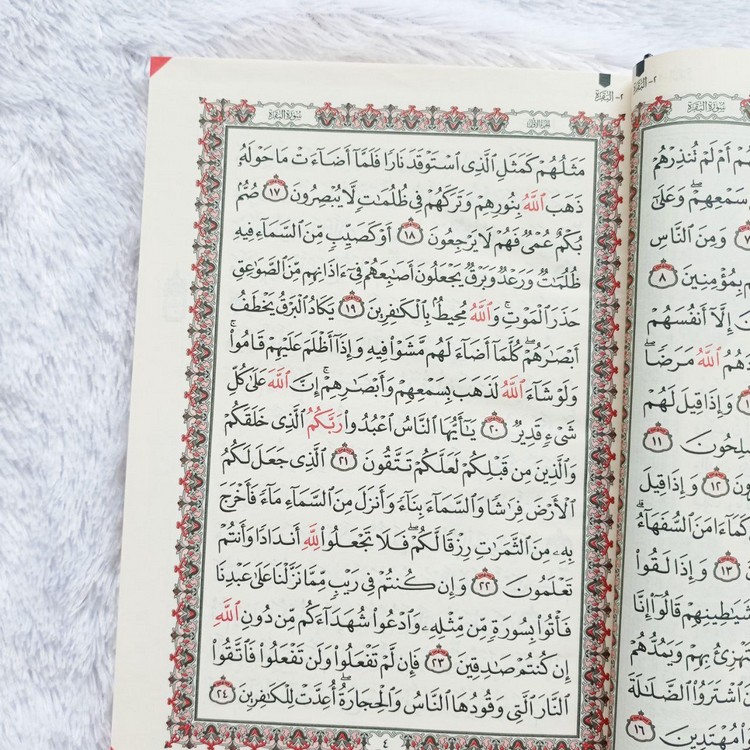 ٢- البَقَرَة
سُورَةُ البَقَرَةِ
الجزء الأول
مَثَلُهُمْ كَمَثَلِ ٱلَّذِى ٱسْتَوْقَدَ نَارًا فَلَمَّآ أَضَآءَتْ مَا حَوْلَهُۥ
ذَهَبَ ٱللَّهُ بِنُورِهِمْ وَتَرَكَهُمْ فِى ظُلُمَـٰتٍ لَّا يُبْصِرُونَ ١٧ صُمٌّۢ
بُكْمٌ عُمْىٌ فَهُمْ لَا يَرْجِعُونَ ١٨ أَوْ كَصَيِّبٍ مِّنَ ٱلسَّمَآءِ فِيهِ
ظُلُمَـٰتٌ وَرَعْدٌ وَبَرْقٌ يَجْعَلُونَ أَصَـٰبِعَهُمْ فِىٓ ءَاذَانِهِم مِّنَ ٱلصَّوَٰعِقِ
حَذَرَ ٱلْمَوْتِ ۚ وَٱللَّهُ مُحِيطٌۢ بِٱلْكَـٰفِرِينَ ١٩ يَكَادُ ٱلْبَرْقُ يَخْطَفُ
أَبْصَـٰرَهُمْ ۖ كُلَّمَآ أَضَآءَ لَهُم مَّشَوْا۟ فِيهِ وَإِذَآ أَظْلَمَ عَلَيْهِمْ قَامُوا۟ ۚ
وَلَوْ شَآءَ ٱللَّهُ لَذَهَبَ بِسَمْعِهِمْ وَأَبْصَـٰرِهِمْ ۚ إِنَّ ٱللَّهَ عَلَىٰ كُلِّ
شَىْءٍ قَدِيرٌ ٢٠ يَـٰٓأَيُّهَا ٱلنَّاسُ ٱعْبُدُوا۟ رَبَّكُمُ ٱلَّذِى خَلَقَكُمْ
وَٱلَّذِينَ مِن قَبْلِكُمْ لَعَلَّكُمْ تَتَّقُونَ ٢١ ٱلَّذِى جَعَلَ لَكُمُ
ٱلْأَرْضَ فِرَٰشًا وَٱلسَّمَآءَ بِنَآءً وَأَنزَلَ مِنَ ٱلسَّمَآءِ مَآءً فَأَخْرَجَ
بِهِۦ مِنَ ٱلثَّمَرَٰتِ رِزْقًا لَّكُمْ ۖ فَلَا تَجْعَلُوا۟ لِلَّهِ أَندَادًا وَأَنتُمْ
تَعْلَمُونَ ٢٢ وَإِن كُنتُمْ فِى رَيْبٍ مِّمَّا نَزَّلْنَا عَلَىٰ عَبْدِنَا
فَأْتُوا۟ بِسُورَةٍ مِّن مِّثْلِهِۦ وَٱدْعُوا۟ شُهَدَآءَكُم مِّن دُونِ ٱللَّهِ
إِن كُنتُمْ صَـٰدِقِينَ ٢٣ فَإِن لَّمْ تَفْعَلُوا۟ وَلَن تَفْعَلُوا۟ فَٱتَّقُوا۟
ٱلنَّارَ ٱلَّتِى وَقُودُهَا ٱلنَّاسُ وَٱلْحِجَارَةُ ۖ أُعِدَّتْ لِلْكَـٰفِرِينَ ٢٤
٤
٢- البَقَرَة
سُورَةُ البَقَرَةِ
أَمْ لَمْ تُنذِرْهُمْ
سَمْعِهِمْ ۖ وَعَلَىٰٓ
٧ وَمِنَ ٱلنَّاسِ
بِمُؤْمِنِينَ ٨
إِلَّآ أَنفُسَهُمْ
ٱللَّهُ مَرَضًا ۖ
وَإِذَا قِيلَ لَهُمْ
١١
١٢ وَإِذَا قِيلَ
كَمَآ ءَامَنَ ٱلسُّفَهَآءُ ۗ
١٣ وَإِذَا لَقُوا۟
شَيَـٰطِينِهِمْ قَالُوٓا۟ إِنَّا
بِهِمْ وَيَمُدُّهُمْ
ٱشْتَرَوُا۟ ٱلضَّلَـٰلَةَ
مُهْتَدِينَ ١٦